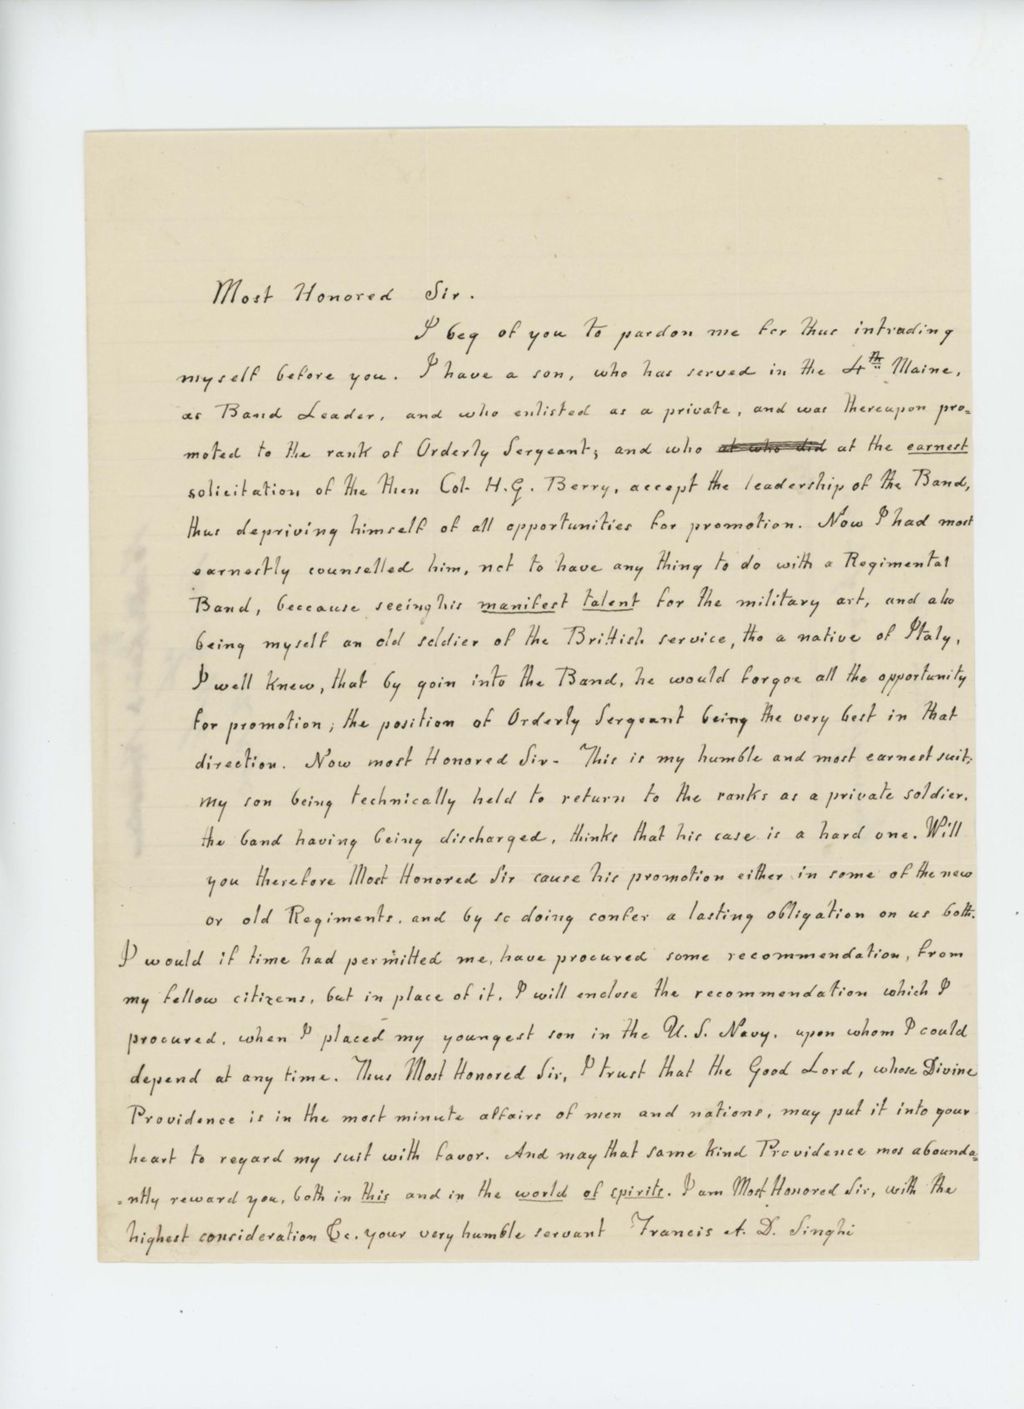 Most Honored Sir.
I beg of you to pardon me for thus intrading
myself before you. I have a son, who has served in the 4th Maine,
as Band Leader, and who enlisted as a private, and was thereupon pro=
moted to the rank of Orderly Sergeant; and who at who did at the earnest
solicitation of the then Col. H. G. Berry, accept the leadership of the Band,
thus depriving himself of all opportunities for promotion. Now I had most
earnestly counselled him, not to have any thing to do with a Regimental
Band, beccause seeing his manifest talent for the military art, and also
being myself an old soldier of the Brittish service, tho a native of Italy,
I well knew, that by goin into the Band, he would forgoe all the opportunity
for promotion; the position of Orderly Sergeant being the very best in that
direction. Now most Honored Sir- This is my humble and most earnest suit;
my son being technically held to return to the ranks as a private soldier,
the band having being discharged, thinks that his case is a hard one. Will
you therefore Most Honored Sir cause his promotion either in some of the new
or old Regiments, and by so doing confer a lasting obligation on us both.
I would if time had permitted me, have procured some recommendation, from
my fellow citizens, but in place of it, I will enclose the recommendation which I
procured, when I placed my youngest son in the U. S. Navy, upon whom I could
depend at any time. Thus Most Honored Sir, I trust that the Good Lord, whose Divine
Providence is in the most minute affairs of men and nations, may put it into your
heart to regard my suit with favor. And may that same kind Providence mos abounda=
=ntly reward you, both in this and in the world of spirits. I am Most Honored Sir, with the
highest concideration &c. your very humble servant Francis A. D. Singhi